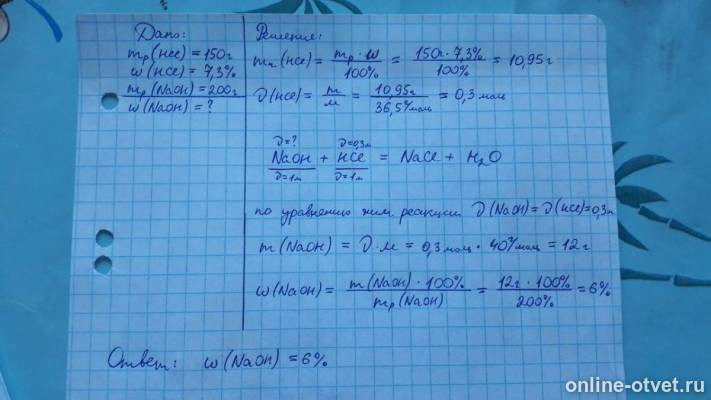 Дано:
mр(HCl) = 150г
w(HCl) = 7,3%
mр(NaOH) = 200г
w(NaOH) = ?
Решение:
mв.(HCl) = mр · w / 100% = 150г · 7,3% / 100% = 10,95г
ν(HCl) = m / M = 10,95г / 36,5г/моль = 0,3 моль
ν=? ν=0,3м
NaOH + HCl = NaCl + H₂O
ν=1м ν=1м
по уравнению хим. реакции ν(NaOH) = ν(HCl) = 0,3м
m(NaOH) = ν · M = 0,3 моль · 40г/моль = 12г
w(NaOH) = m(NaOH) · 100% / mр(NaOH) = 12г · 100% / 200% = 6%
Ответ: w(NaOH) = 6%
online-otvet.ru